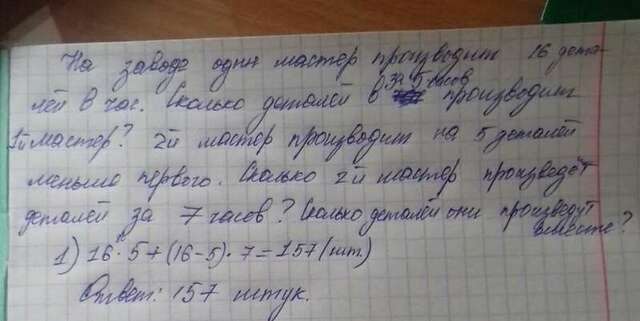 На заводе один мастер производит 16 дета-
лей в час. Сколько деталей за 5 часов производит
1й мастер? 2й мастер производит на 5 деталей
меньше первого. Сколько 2й мастер произведёт
деталей за 7 часов? Сколько деталей они произведут
вместе?
1) 16 · 5 + (16-5) · 7 = 157 (шт.)
Ответ: 157 штук.